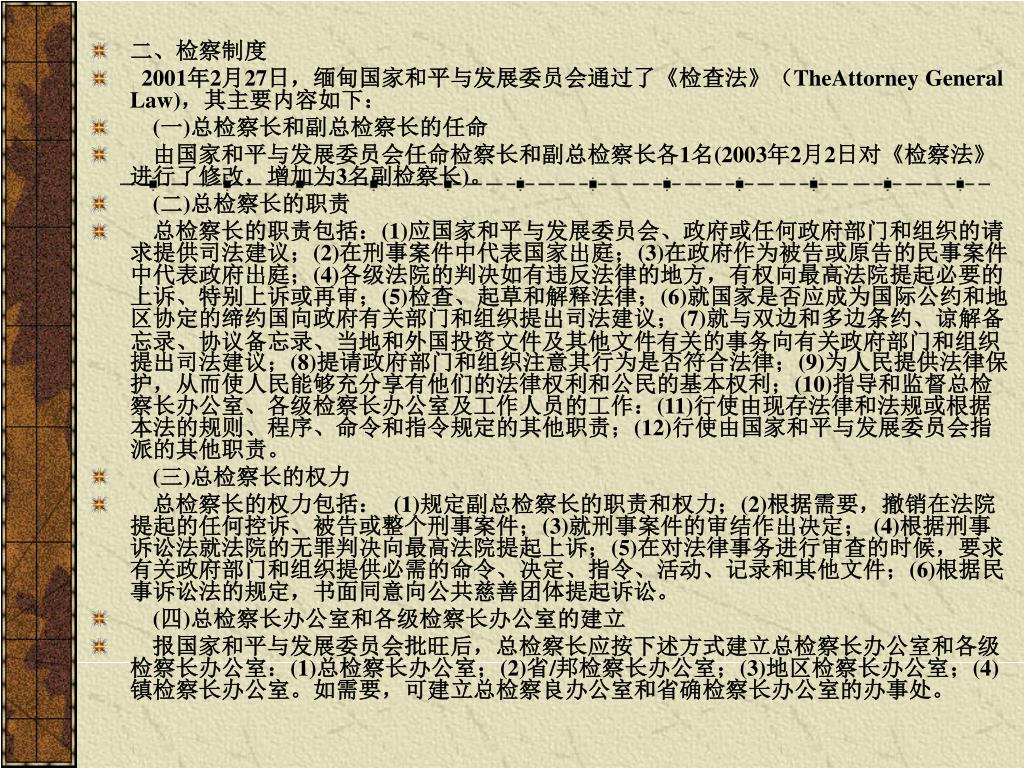 二、检察制度
2001年2月27日，缅甸国家和平与发展委员会通过了《检查法》（TheAttorney General
Law)，其主要内容如下：
(一)总检察长和副总检察长的任命
由国家和平与发展委员会任命检察长和副总检察长各1名(2003年2月2日对《检察法》
进行了修改，增加为3名副检察长)。
(二)总检察长的职责
总检察长的职责包括：(1)应国家和平与发展委员会、政府或任何政府部门和组织的请
求提供司法建议；(2)在刑事案件中代表国家出庭；(3)在政府作为被告或原告的民事案件
中代表政府出庭；(4)各级法院的判决如有违反法律的地方，有权向最高法院提起必要的
上诉、特别上诉或再审；(5)检查、起草和解释法律；(6)就国家是否应成为国际公约和地
区协定的缔约国向政府有关部门和组织提出司法建议；(7)就与双边和多边条约、谅解备
忘录、协议备忘录、当地和外国投资文件及其他文件有关的事务向有关政府部门和组织
提出司法建议；(8)提请政府部门和组织注意其行为是否符合法律；(9)为人民提供法律保
护，从而使人民能够充分享有他们的法律权利和公民的基本权利；(10)指导和监督总检
察长办公室、各级检察长办公室及工作人员的工作：(11)行使由现存法律和法规或根据
本法的规则、程序、命令和指令规定的其他职责；(12)行使由国家和平与发展委员会指
派的其他职责。
(三)总检察长的权力
总检察长的权力包括： (1)规定副总检察长的职责和权力；(2)根据需要，撤销在法院
提起的任何控诉、被告或整个刑事案件；(3)就刑事案件的审结作出决定； (4)根据刑事
诉讼法就法院的无罪判决向最高法院提起上诉；(5)在对法律事务进行审查的时候，要求
有关政府部门和组织提供必需的命令、决定、指令、活动、记录和其他文件；(6)根据民
事诉讼法的规定，书面同意向公共慈善团体提起诉讼。
(四)总检察长办公室和各级检察长办公室的建立
报国家和平与发展委员会批旺后，总检察长应按下述方式建立总检察长办公室和各级
检察长办公室：(1)总检察长办公室；(2)省/邦检察长办公室；(3)地区检察长办公室；(4)
镇检察长办公室。如需要，可建立总检察良办公室和省确检察长办公室的办事处。